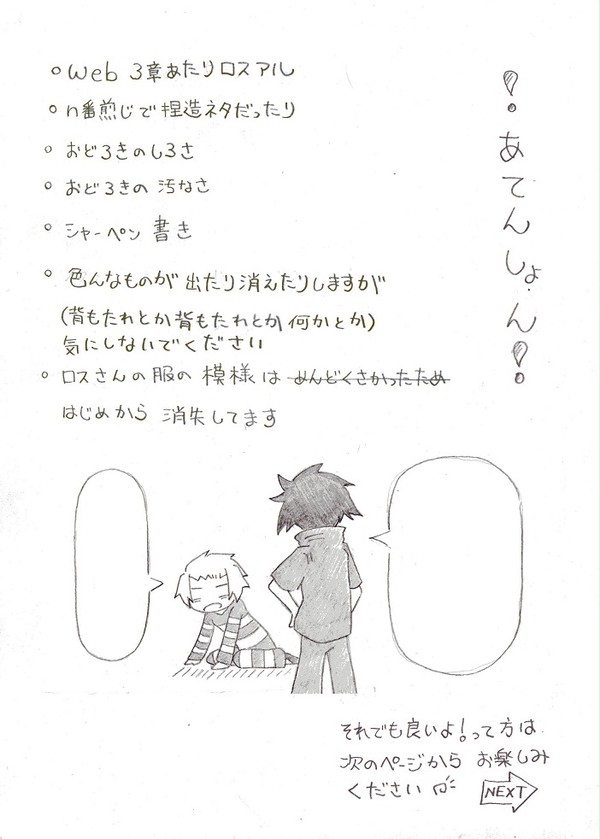 ！あてんしょん！
○ web 3章あたりロスアル
○ n番煎じで捏造ネタだったり
○ おどろきのしろさ
○ おどろきの汚なさ
○ シャーペン書き
○ 色んなものが出たり消えたりしますが
(背もたれとか背もたれとか何かとか)
気にしないでください
○ ロスさんの服の模様はめんどくさかったため
はじめから消失してます
それでも良いよ！って方は
次のページからお楽しみ
ください
NEXT